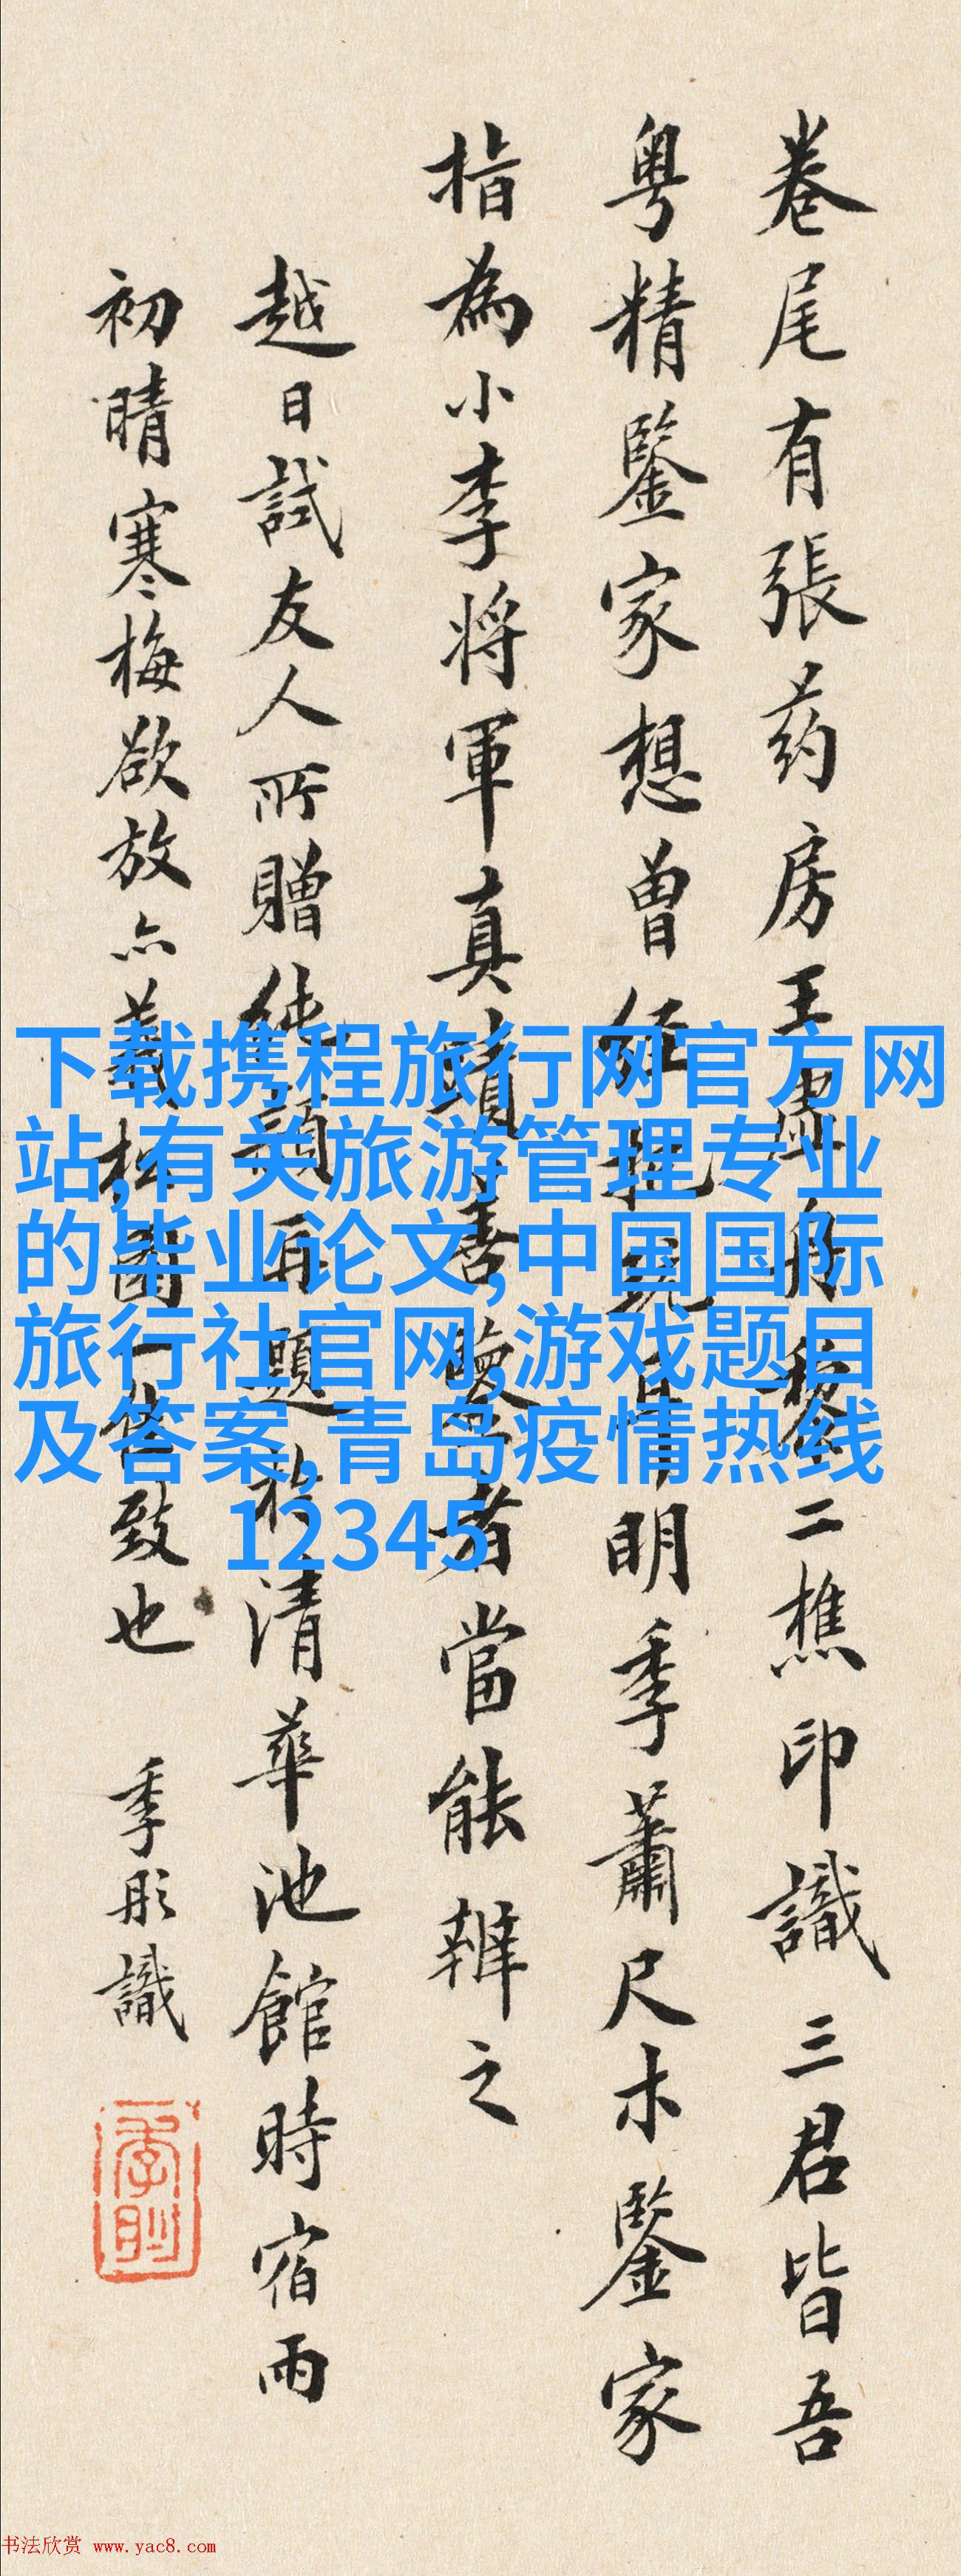 卷尾有張药房王虛舟
二樵印識三君皆吾
粵精鑒家想曾經
明季蕭尺木鑒家
指為小李將軍真蹟善
者當能辨之
越日試友人所贈純
再題於清華池館時宿雨
初晴寒梅欲放亦
致也
季彤識
下载携程旅行网官方网
站,有关旅游管理专业
的毕业论文,中国国际
旅行社官网,游戏题目
及答案,青岛疫情热线
12345
书法欣赏 www.yac8.com